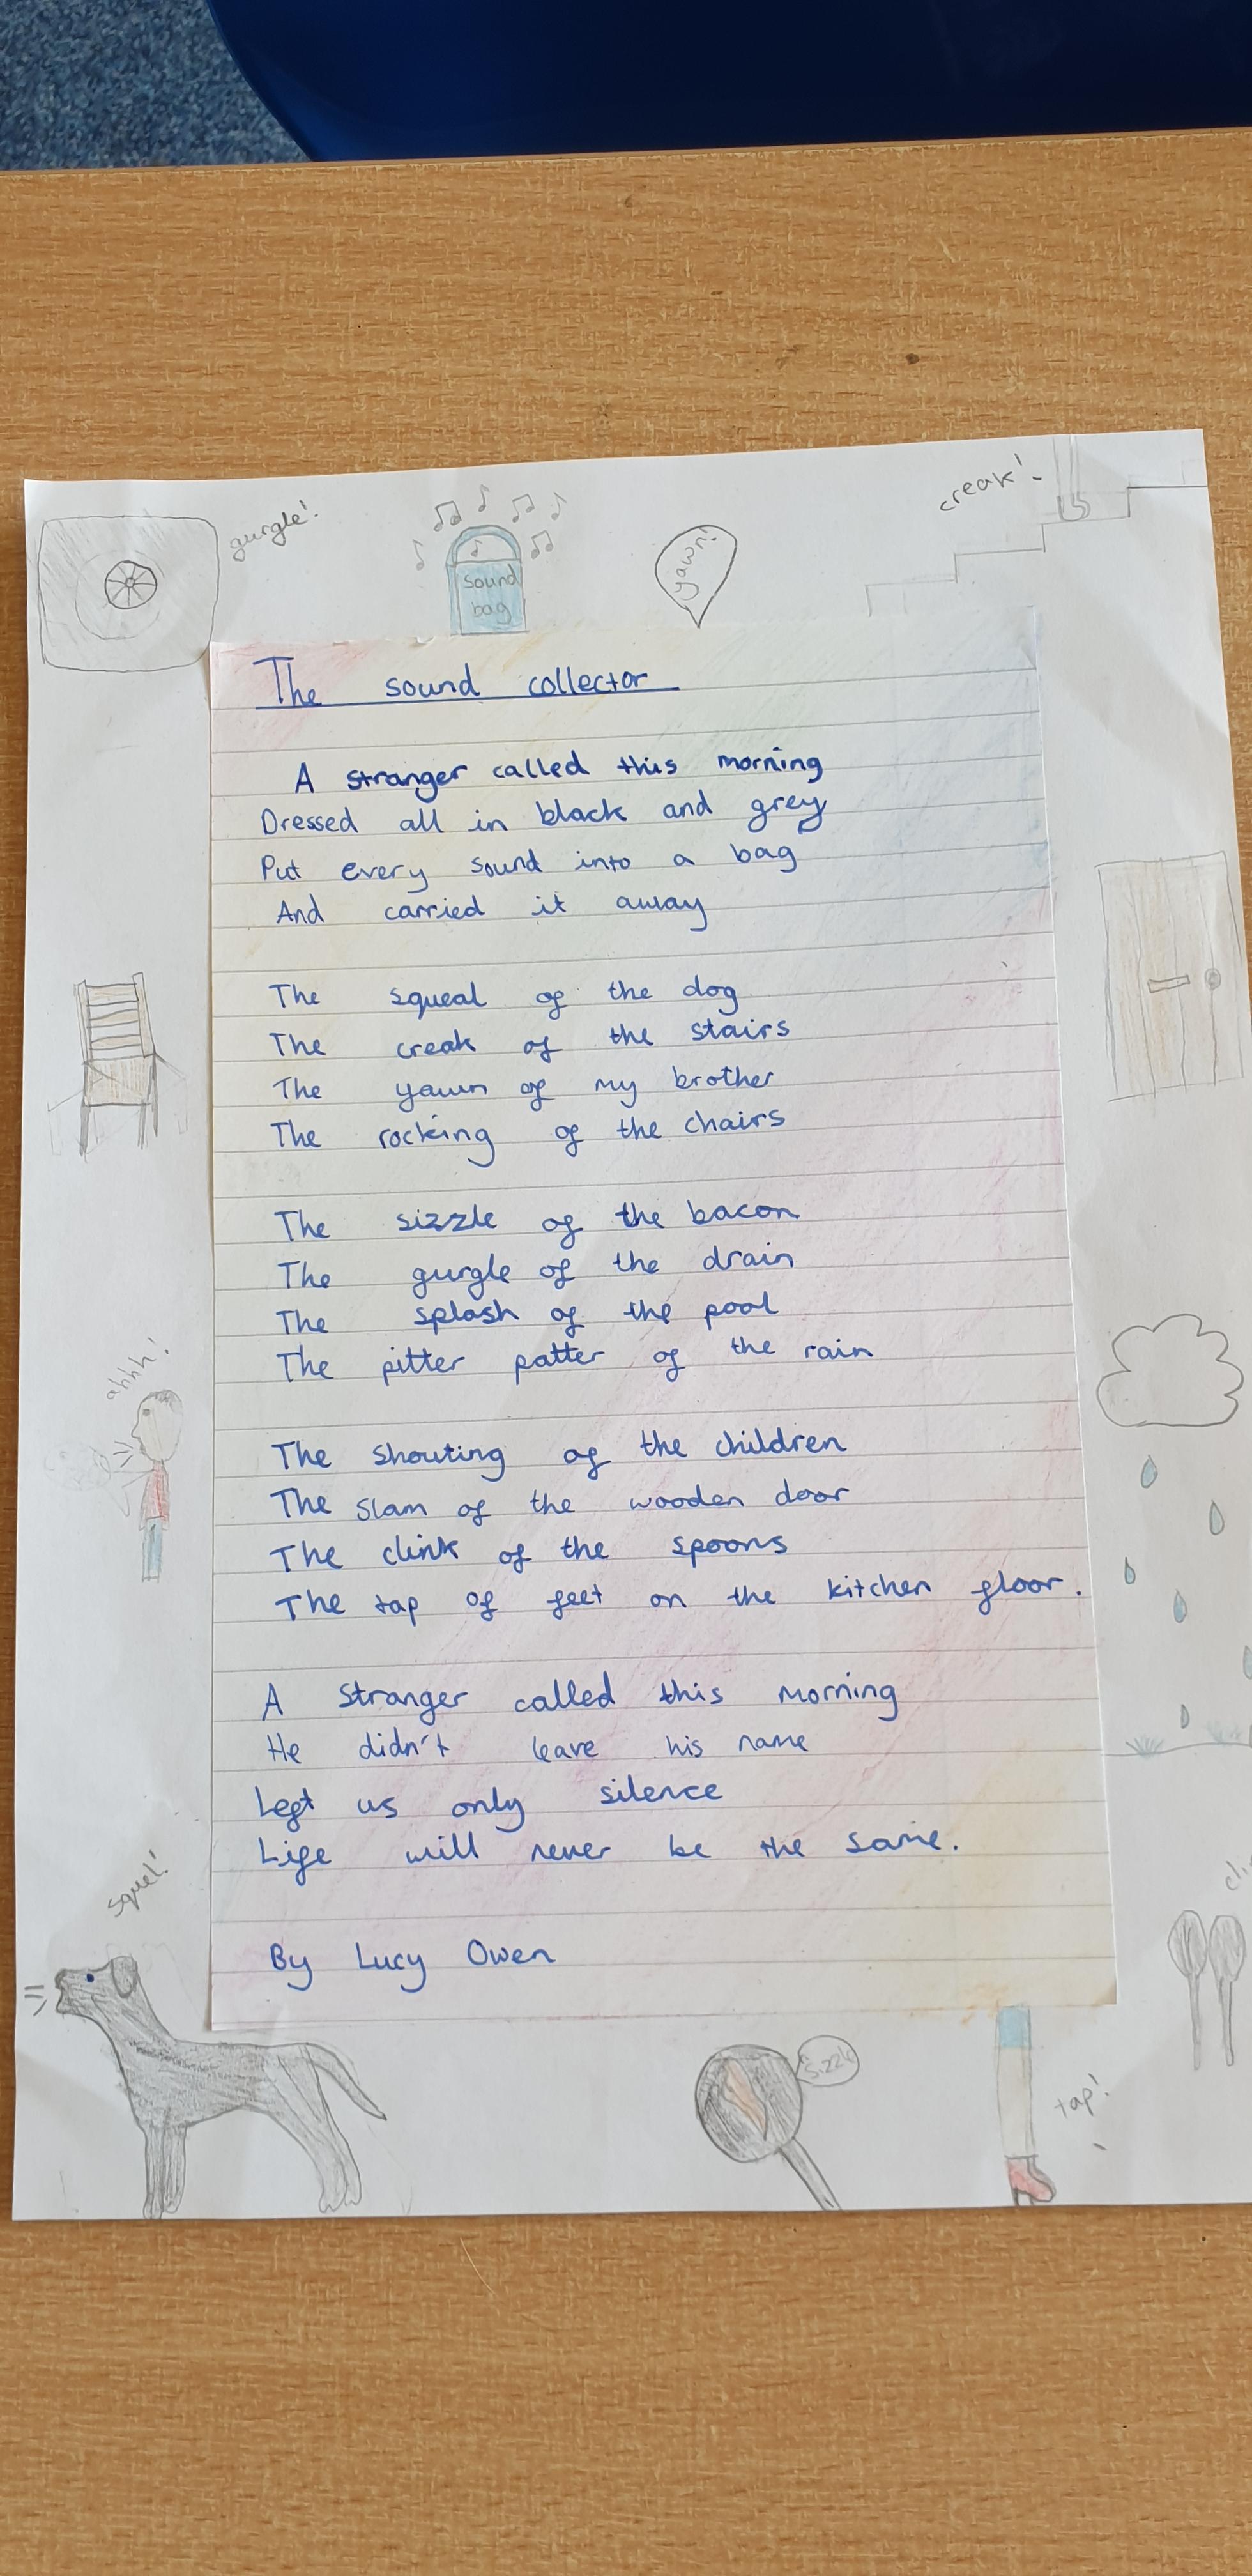 gurgle!
sound
bag
yawn!
creak!
The sound collector
A stranger called this morning
Dressed all in black and grey
Put every sound into a bag
And carried it away
The squeal of the dog
The creak of the stairs
The yawn of my brother
The rocking of the chairs
The sizzle of the bacon
The gurgle of the drain
The splash of the pool
The pitter patter of the rain
ahhh!
The shouting of the children
The slam of the wooden door
The clink of the spoons
The tap of feet on the kitchen floor.
A stranger called this morning
He didn't leave his name
Left us only silence
Life will never be the same.
squel!
By Lucy Owen
tap!